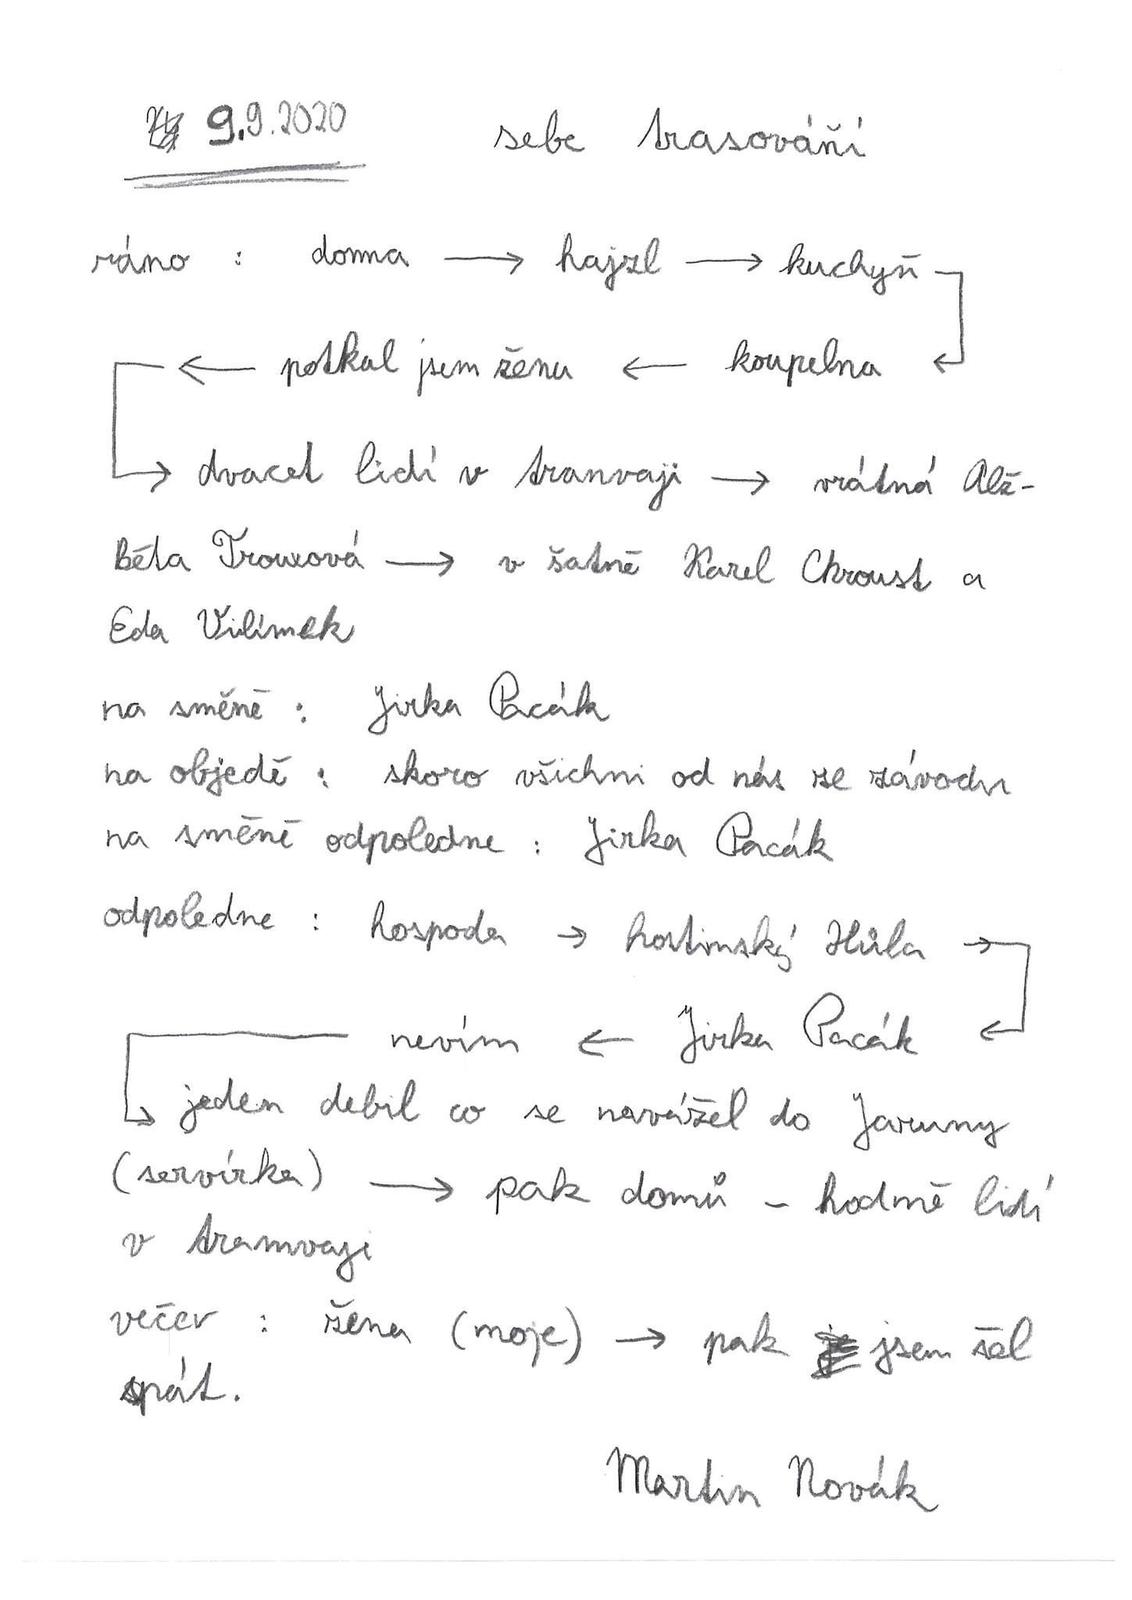 9.9.2020 sebe trasováňí
ráno : doma → hajzl → kuchyň
← potkal jsem ženu ← koupelna
→ dvacet lidí v tranvaji → vrátná Alž-
Běta Trouxová → v šatně Karel Chroust a
Eda Vilímek
na směně : Jirka Pacák
na objedě : skoro všichni od nás ze závodu
na směně odpoledne : Jirka Pacák
odpoledne : hospoda → hostinský Hůla →
nevím ← Jirka Pacák ←
→ jeden debil co se navážel do Jaruny
(servírka) → pak domů – hodně lidí
v tramvaji
večer : žena (moje) → pak jsem šel
spát.
Martin Novák